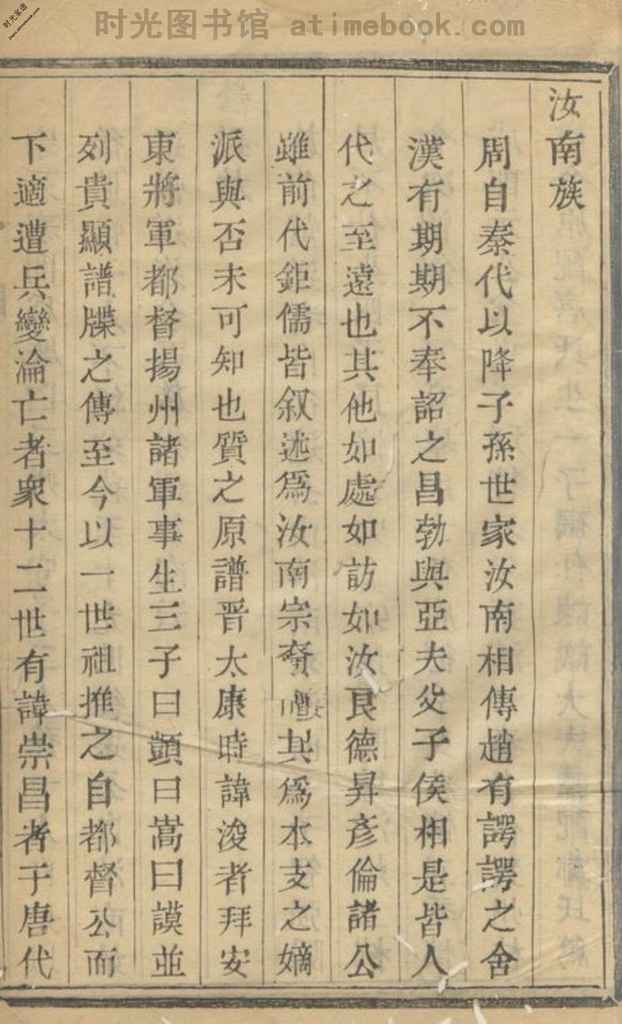 时光图书馆 atimebook.com
汝南族
周自秦代以降子孫世家汝南相傳趙有諤諤之舍
漢有期期不奉詔之昌勃與亞夫父子侯相是皆人
代之至遠也其他如處如訪如汝艮德昇彥倫諸公
雖前代鉅儒皆叙述爲汝南宗其爲本支之嫡
派與否未可知也質之原譜晋太康時諱浚者拜安
東將軍都督揚州諸軍事生三子曰顗曰嵩曰謨並
列貴顯譜牒之傳至今以一世祖推之自都督公而
下適遭兵變淪亡者衆十二世有諱崇昌者于唐代